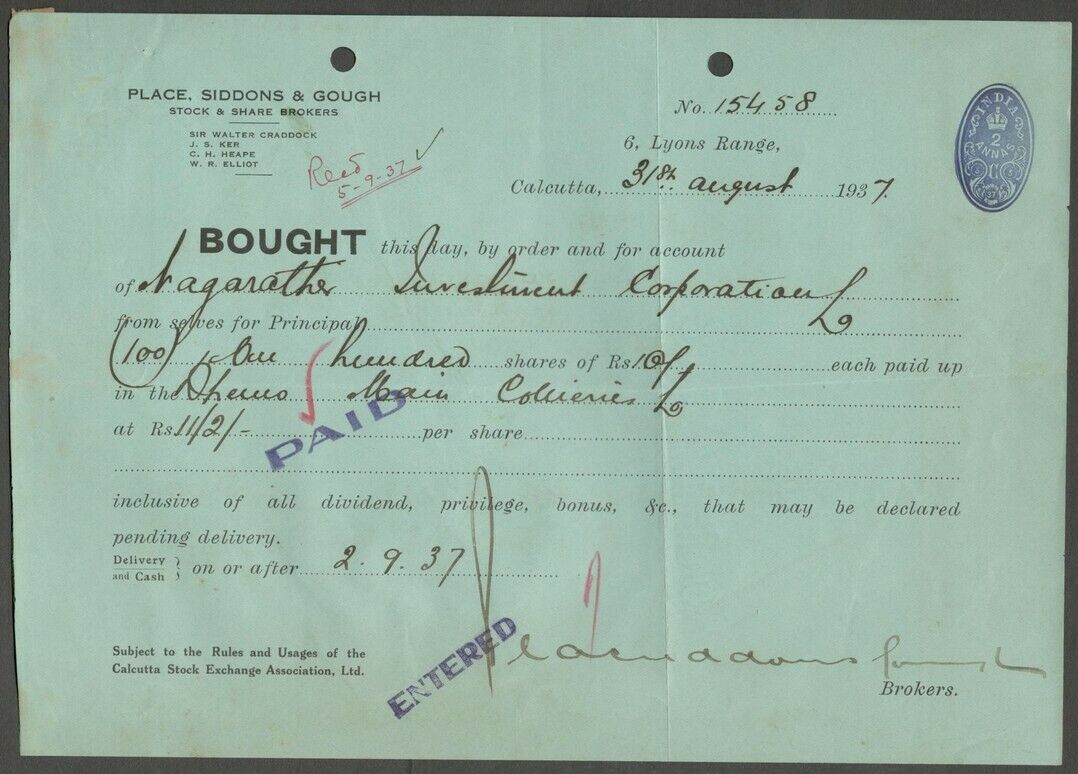 PLACE, SIDDONS & GOUGH
STOCK & SHARE BROKERS
SIR WALTER CRADDOCK
J. S. KER
C. H. HEAPE
W. R. ELLIOT
Recd
5-9-37
No. 15458
6, Lyons Range,
Calcutta, 31st august 1937.
INDIA
2
ANNAS
BOUGHT this day, by order and for account
of Nagarather Investment Corporation Ld
from selves for Principal
(100) One hundred shares of Rs 10/- each paid up
in the Dhemo Main Collieries Ld
at Rs 11/2/- per share
PAID
inclusive of all dividend, privilege, bonus, &c., that may be declared
pending delivery.
Delivery and Cash } on or after 2.9.37
ENTERED
Subject to the Rules and Usages of the
Calcutta Stock Exchange Association, Ltd.
Brokers.